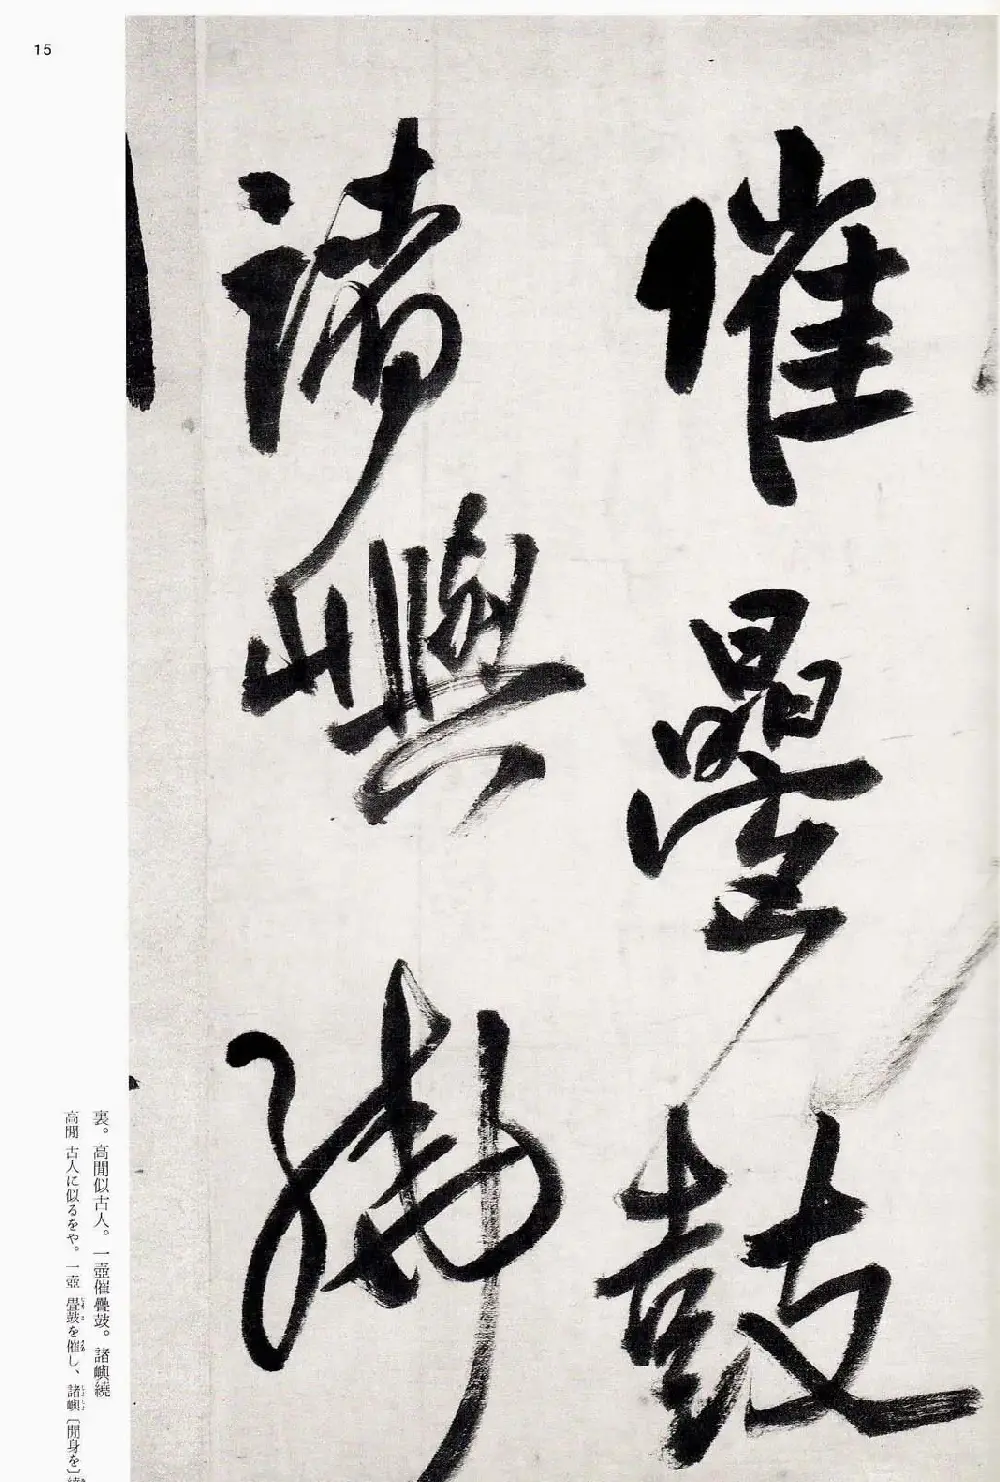 15
催疊鼓
諸嶼繞
裏。高閒似古人。一壺催疊鼓。諸嶼繞
高閒 古人に似るをや。一壺 疊鼓を催し、諸嶼〔閒身を〕繞